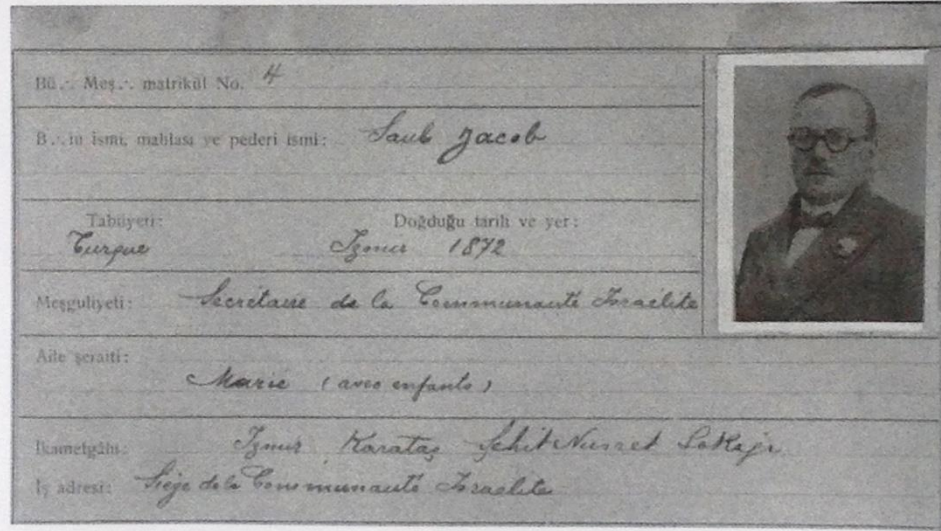 Bü∴ Meş∴ matrikül No. 4
B∴in ismi, mahlası ve pederi ismi: Saul Jacob
Tabiiyeti: Doğduğu tarih ve yer:
Turque Izmir 1872
Meşguliyeti: Secrétaire de la Communauté Israelite
Aile şeraiti:
Marié (avec enfants)
İkametgâhı: Izmir Karataş Şehit Nusret Sokağı
İş adresi: Siége de la Communauté Israelite